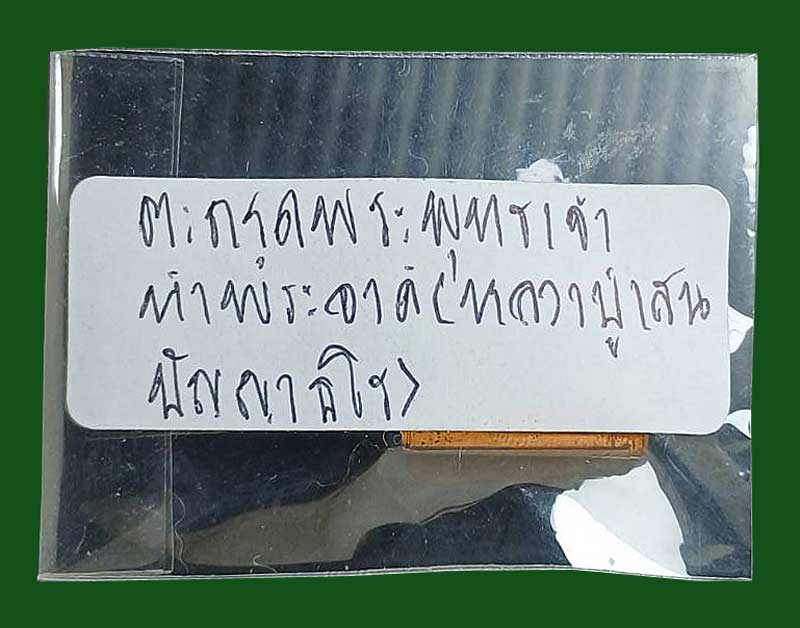 ตะกรุดพระพุทธเจ้า
ห้ามพระอาทิ(หลวงปู่แสน
ปัญญาธโร)